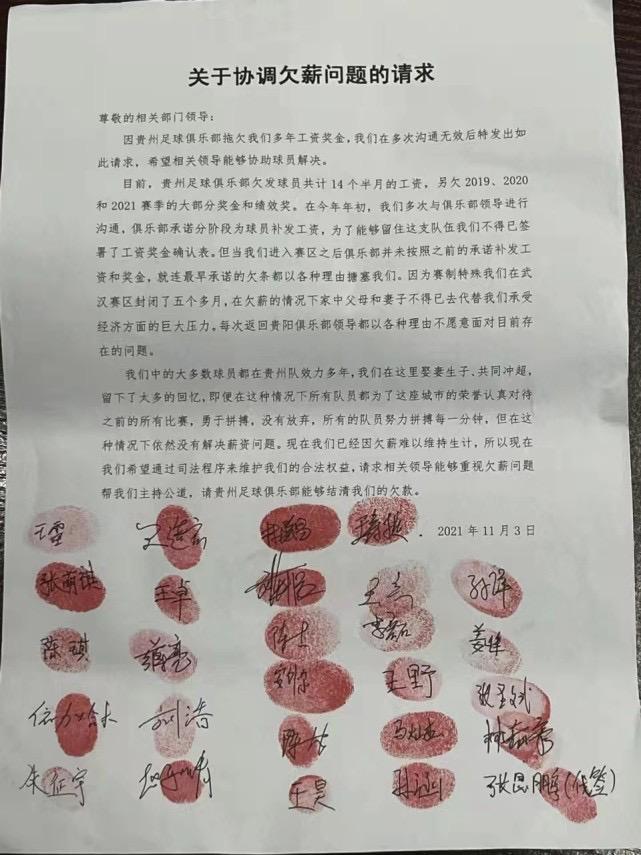 关于协调欠薪问题的请求
尊敬的相关部门领导：
因贵州足球俱乐部拖欠我们多年工资奖金，我们在多次沟通无效后特发出如
此请求，希望相关领导能够协助球员解决。
目前，贵州足球俱乐部欠发球员共计 14 个半月的工资，另欠 2019、2020
和 2021 赛季的大部分奖金和绩效奖。在今年年初，我们多次与俱乐部领导进行
沟通，俱乐部承诺分阶段为球员补发工资，为了能够留住这支队伍我们不得已签
署了工资奖金确认表。但当我们进入赛区之后俱乐部并未按照之前的承诺补发工
资和奖金，就连最早承诺的欠条都以各种理由搪塞我们。因为赛制特殊我们在武
汉赛区封闭了五个多月，在欠薪的情况下家中父母和妻子不得已去代替我们承受
经济方面的巨大压力。每次返回贵阳俱乐部领导都以各种理由不愿意面对目前存
在的问题。
我们中的大多数球员都在贵州队效力多年，我们在这里娶妻生子、共同冲超，
留下了太多的回忆，即便在这种情况下所有队员都为了这座城市的荣誉认真对待
之前的所有比赛，勇于拼搏，没有放弃，所有的队员努力拼搏每一分钟，但在这
种情况下依然没有解决薪资问题。现在我们已经因欠薪难以维持生计，所以现在
我们希望通过司法程序来维护我们的合法权益，请求相关领导能够重视欠薪问题
帮我们主持公道，请贵州足球俱乐部能够结清我们的欠款。
2021 年 11 月 3 日
王卓
陈琪
王野
刘浩
朱征宇
王昊
张思鹏(代签)